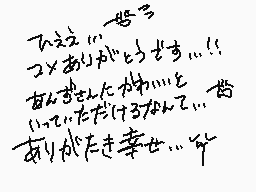 ひええ...
コメありがとうです...!!
あんずさんにかわいいと
いっていただけるなんて...
ありがたき幸せ...